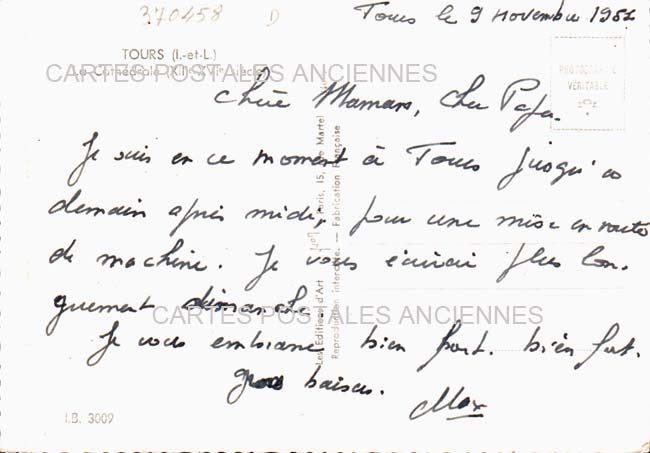 370458 D
Tours le 9 novembre 1952
TOURS (I.-et-L.)
La Cathédrale (XIIe-XVIe siècle)
CARTES POSTALES ANCIENNES
PHOTOGRAPHIE
VÉRITABLE
Chère Maman, Cher Papa.
Je suis en ce moment à Tours jusqu'à
demain après midi, pour une mise en route
de machine. Je vous écrirai plus lon-
guement dimanche.
CARTES POSTALES ANCIENNES
Je vous embrasse bien fort. bien fort.
gros baisers.
Max
I.B. 3009
Les Editions d'Art Paris, 15, rue Martel
Reproduction interdite. — Fabrication Française